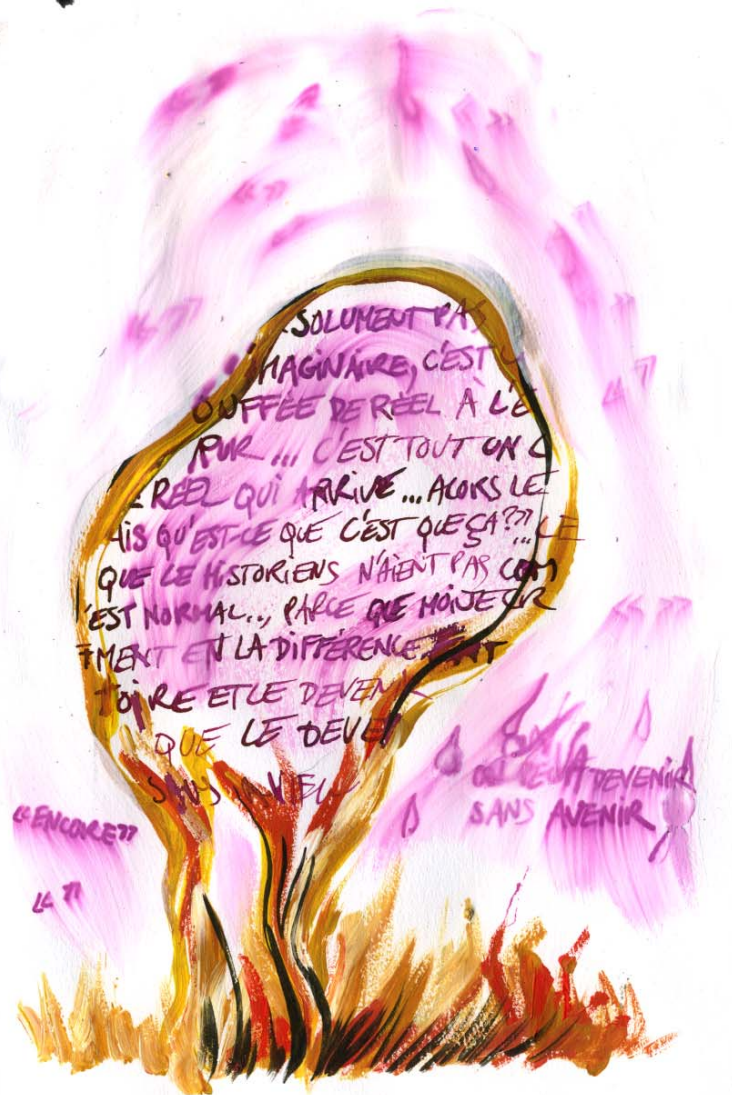 SOLUMENT PAS
IMAGINAIRE, C'EST U
OUFFÉE DE RÉEL À L'É
PUR... C'EST TOUT UN C
E RÉEL QUI ARRIVE... ALORS LE
AIS QU'EST-CE QUE C'EST QUE ÇA?"... LE
QUE LE HISTORIENS N'AIENT PAS COM
'EST NORMAL..., PARCE QUE MOI JE CR
MENT EN LA DIFFÉRENCE
TOIRE ET LE DEVEN
QUE LE DEVE
SANS AVE
DEVENIR
SANS AVENIR
"ENCORE"
" "